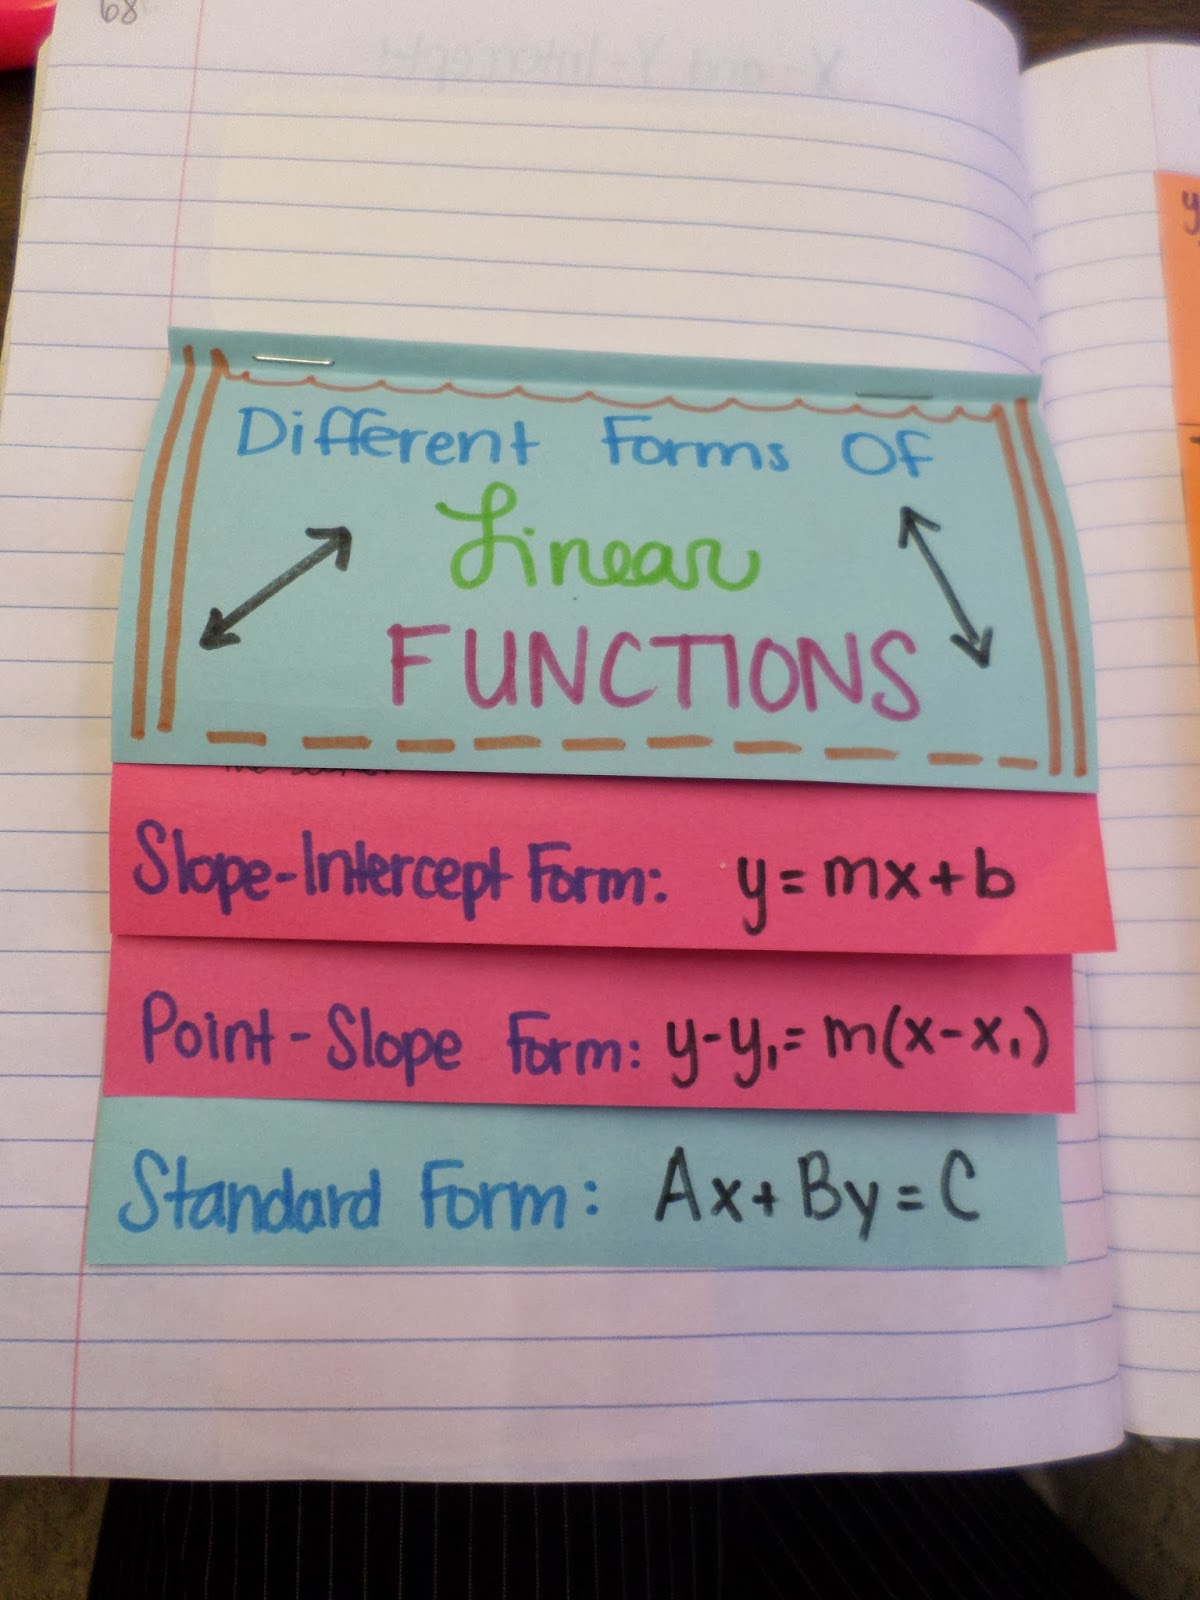 68
X- and Y-Intercepts
Different Forms Of
Linear
FUNCTIONS
Slope-Intercept Form: y = mx + b
Point-Slope Form: y-y₁ = m(x-x₁)
Standard Form: Ax + By = C
y